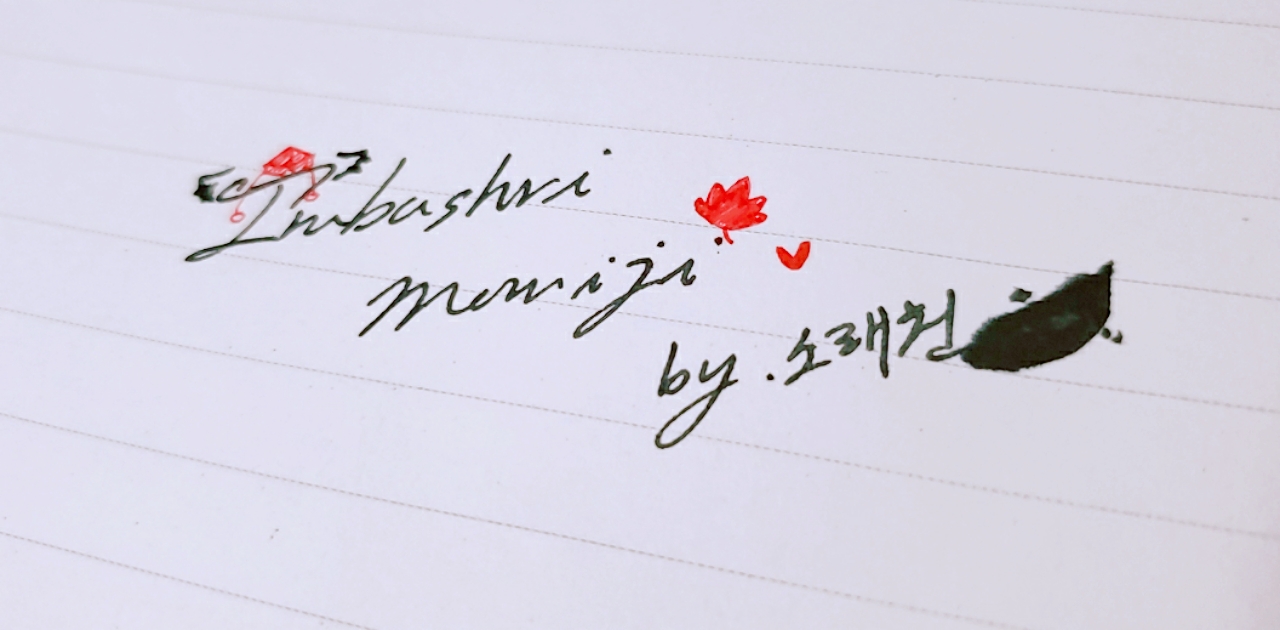 Inubashri
momiji
by.